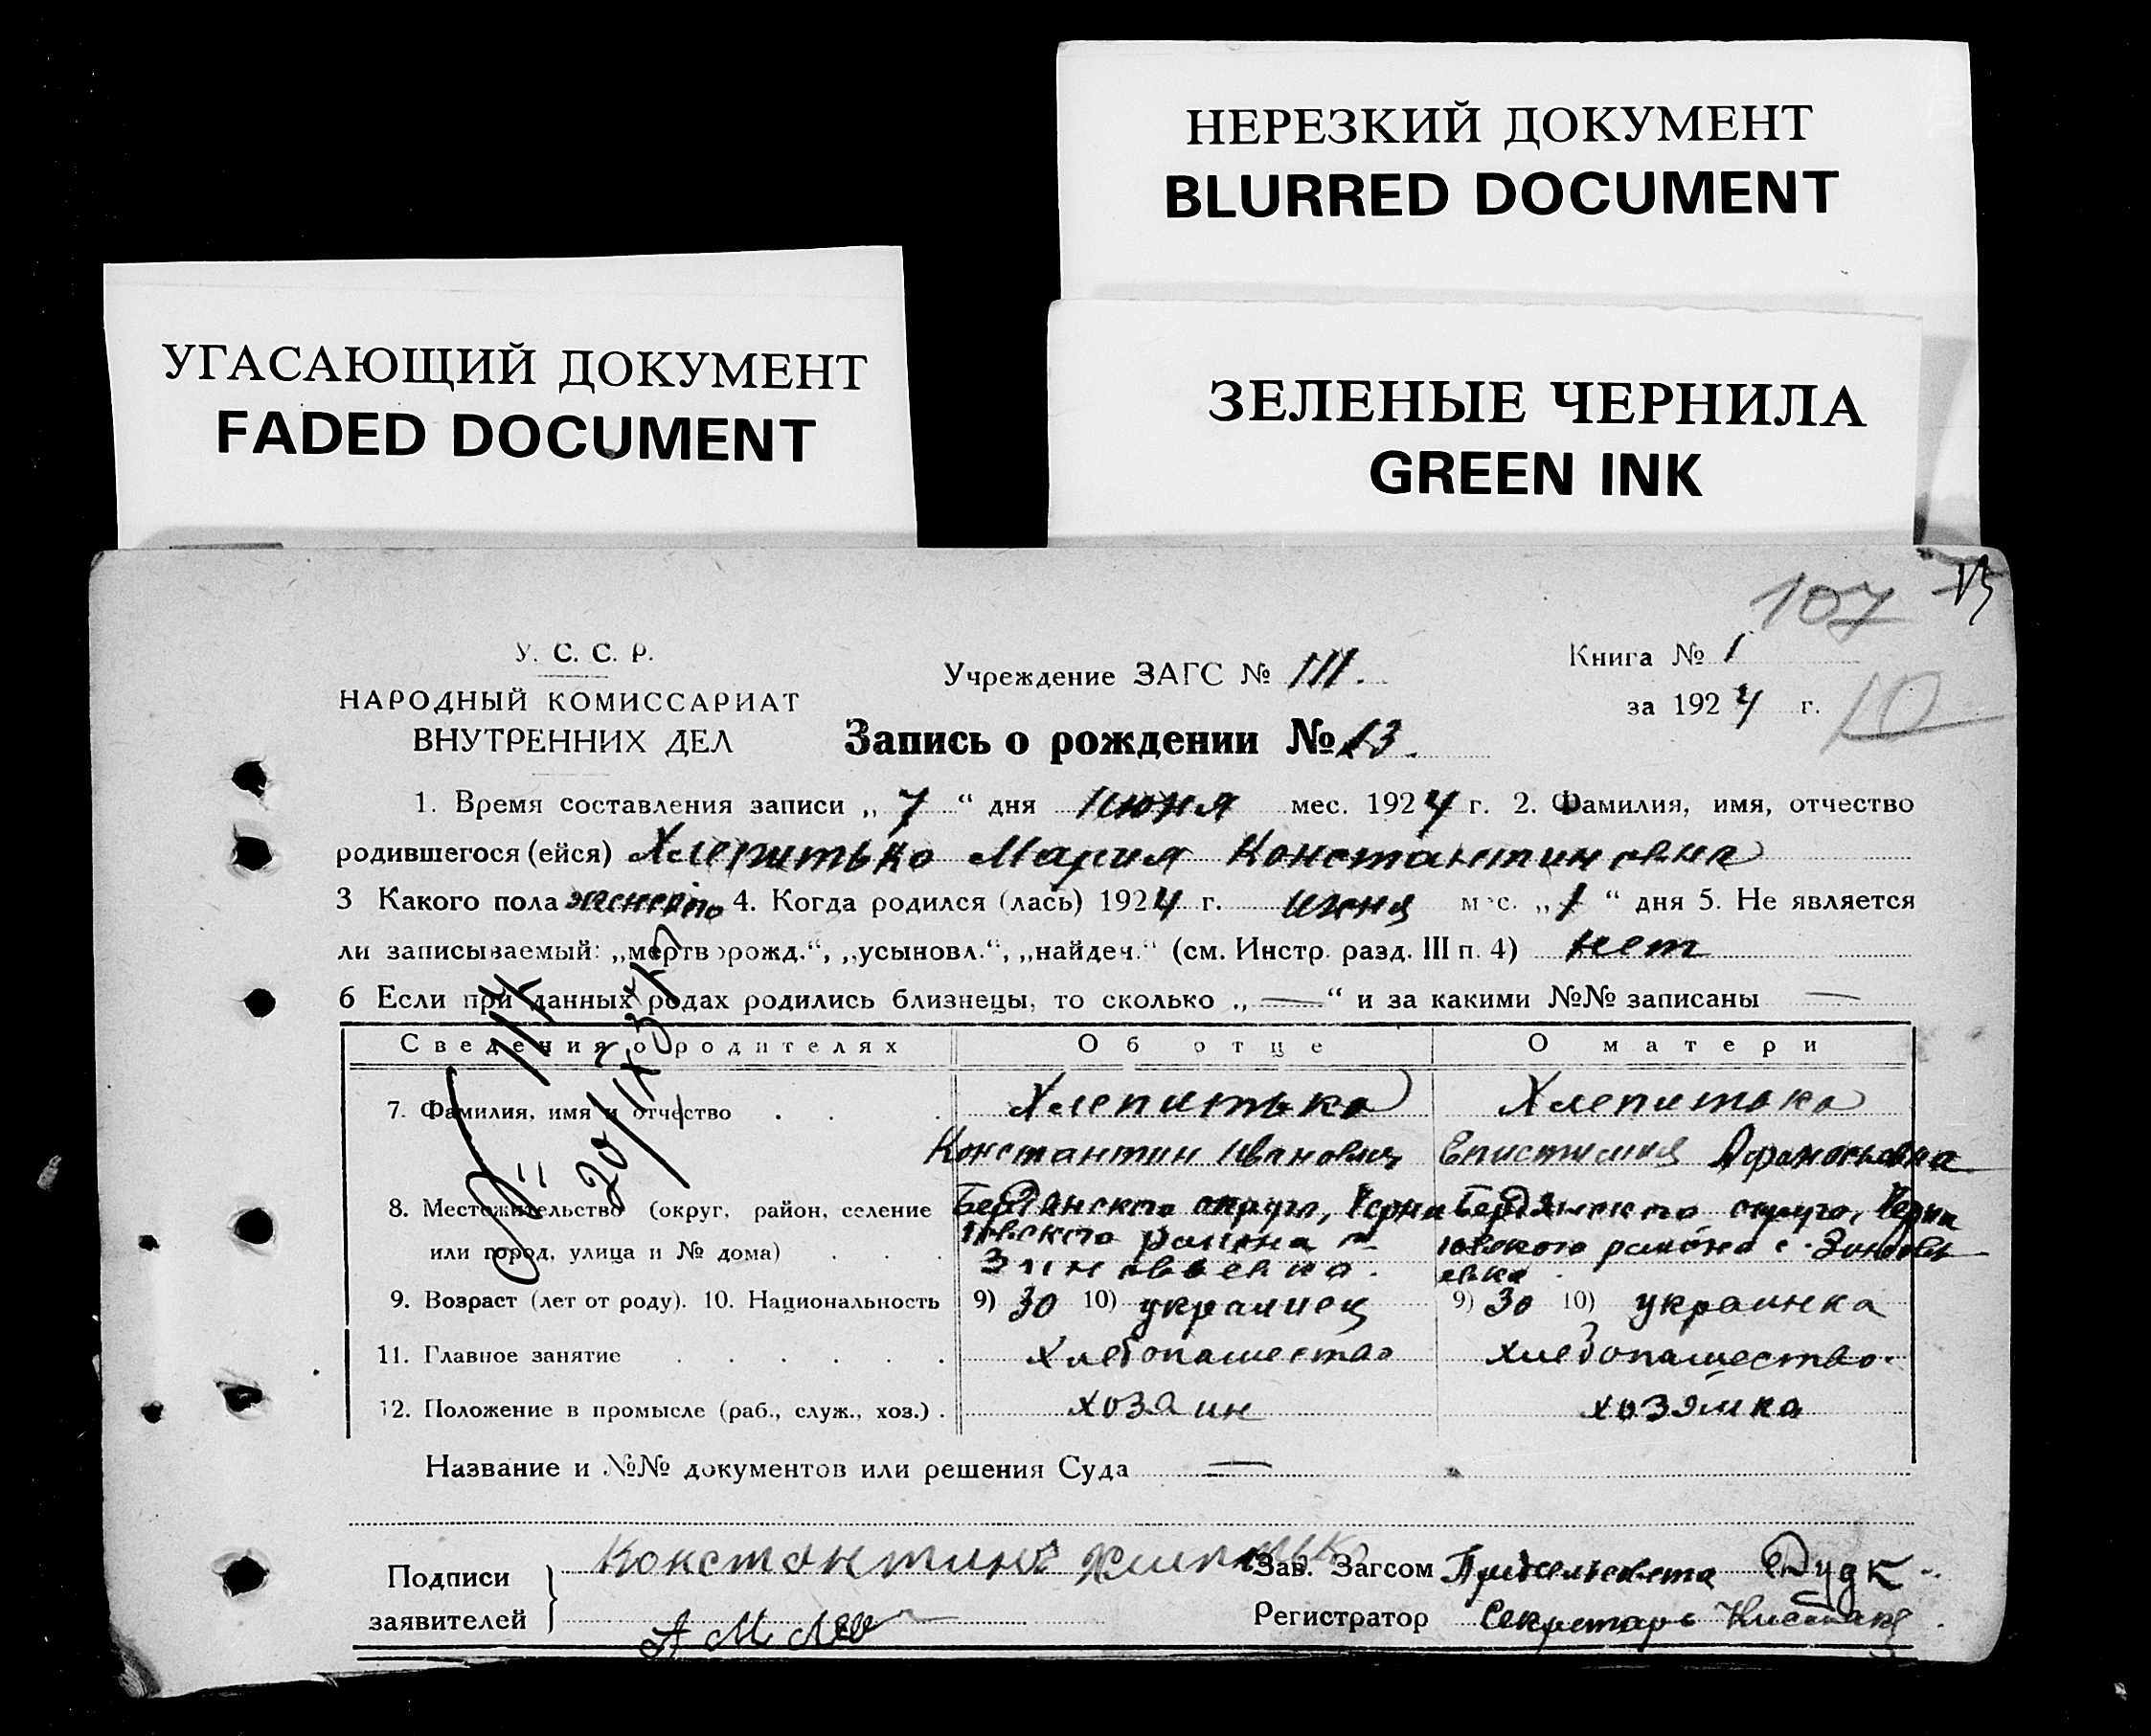 НЕРЕЗКИЙ ДОКУМЕНТ
BLURRED DOCUMENT
УГАСАЮЩИЙ ДОКУМЕНТ
FADED DOCUMENT
ЗЕЛЕНЫЕ ЧЕРНИЛА
GREEN INK
107
У. С. С. Р.
НАРОДНЫЙ КОМИССАРИАТ
ВНУТРЕННИХ ДЕЛ
Учреждение ЗАГС № III.
Книга № 1
за 1924 г.
10
Запись о рождении № 13.
1. Время составления записи „ 7 “ дня Июня мес. 1924 г. 2. Фамилия, имя, отчество
родившегося (ейся) Хлепитько Мария Константиновна
3 Какого пола женского 4. Когда родился (лась) 1924 г. июня мес. „ 1 “ дня 5. Не является
ли записываемый: „мертворожд.“, „усыновл.“, „найдеч.“ (см. Инстр. разд. III п. 4) нет
6 Если при данных родах родились близнецы, то сколько „ — “ и за какими №№ записаны —
Сведения о родителях Об отце О матери
7. Фамилия, имя и отчество Хлепитько Хлепитько
Константин Иванович Епистимия Афанасьевна
8. Местожительство (округ, район, селение Бердянского округа, Черни Бердянского округа, Черни
или город, улица и № дома) говского района с. говского района с. Зиновь
Зиновьевка. евка.
9. Возраст (лет от роду). 10. Национальность 9) 30 10) украинец 9) 30 10) украинка
11. Главное занятие хлебопашество хлебопашество.
12. Положение в промысле (раб., служ., хоз.) хозяин хозяйка
Название и №№ документов или решения Суда —
Подписи
заявителей
Константин Хлепитько
Зав. Загсом
Регистратор Секретарь